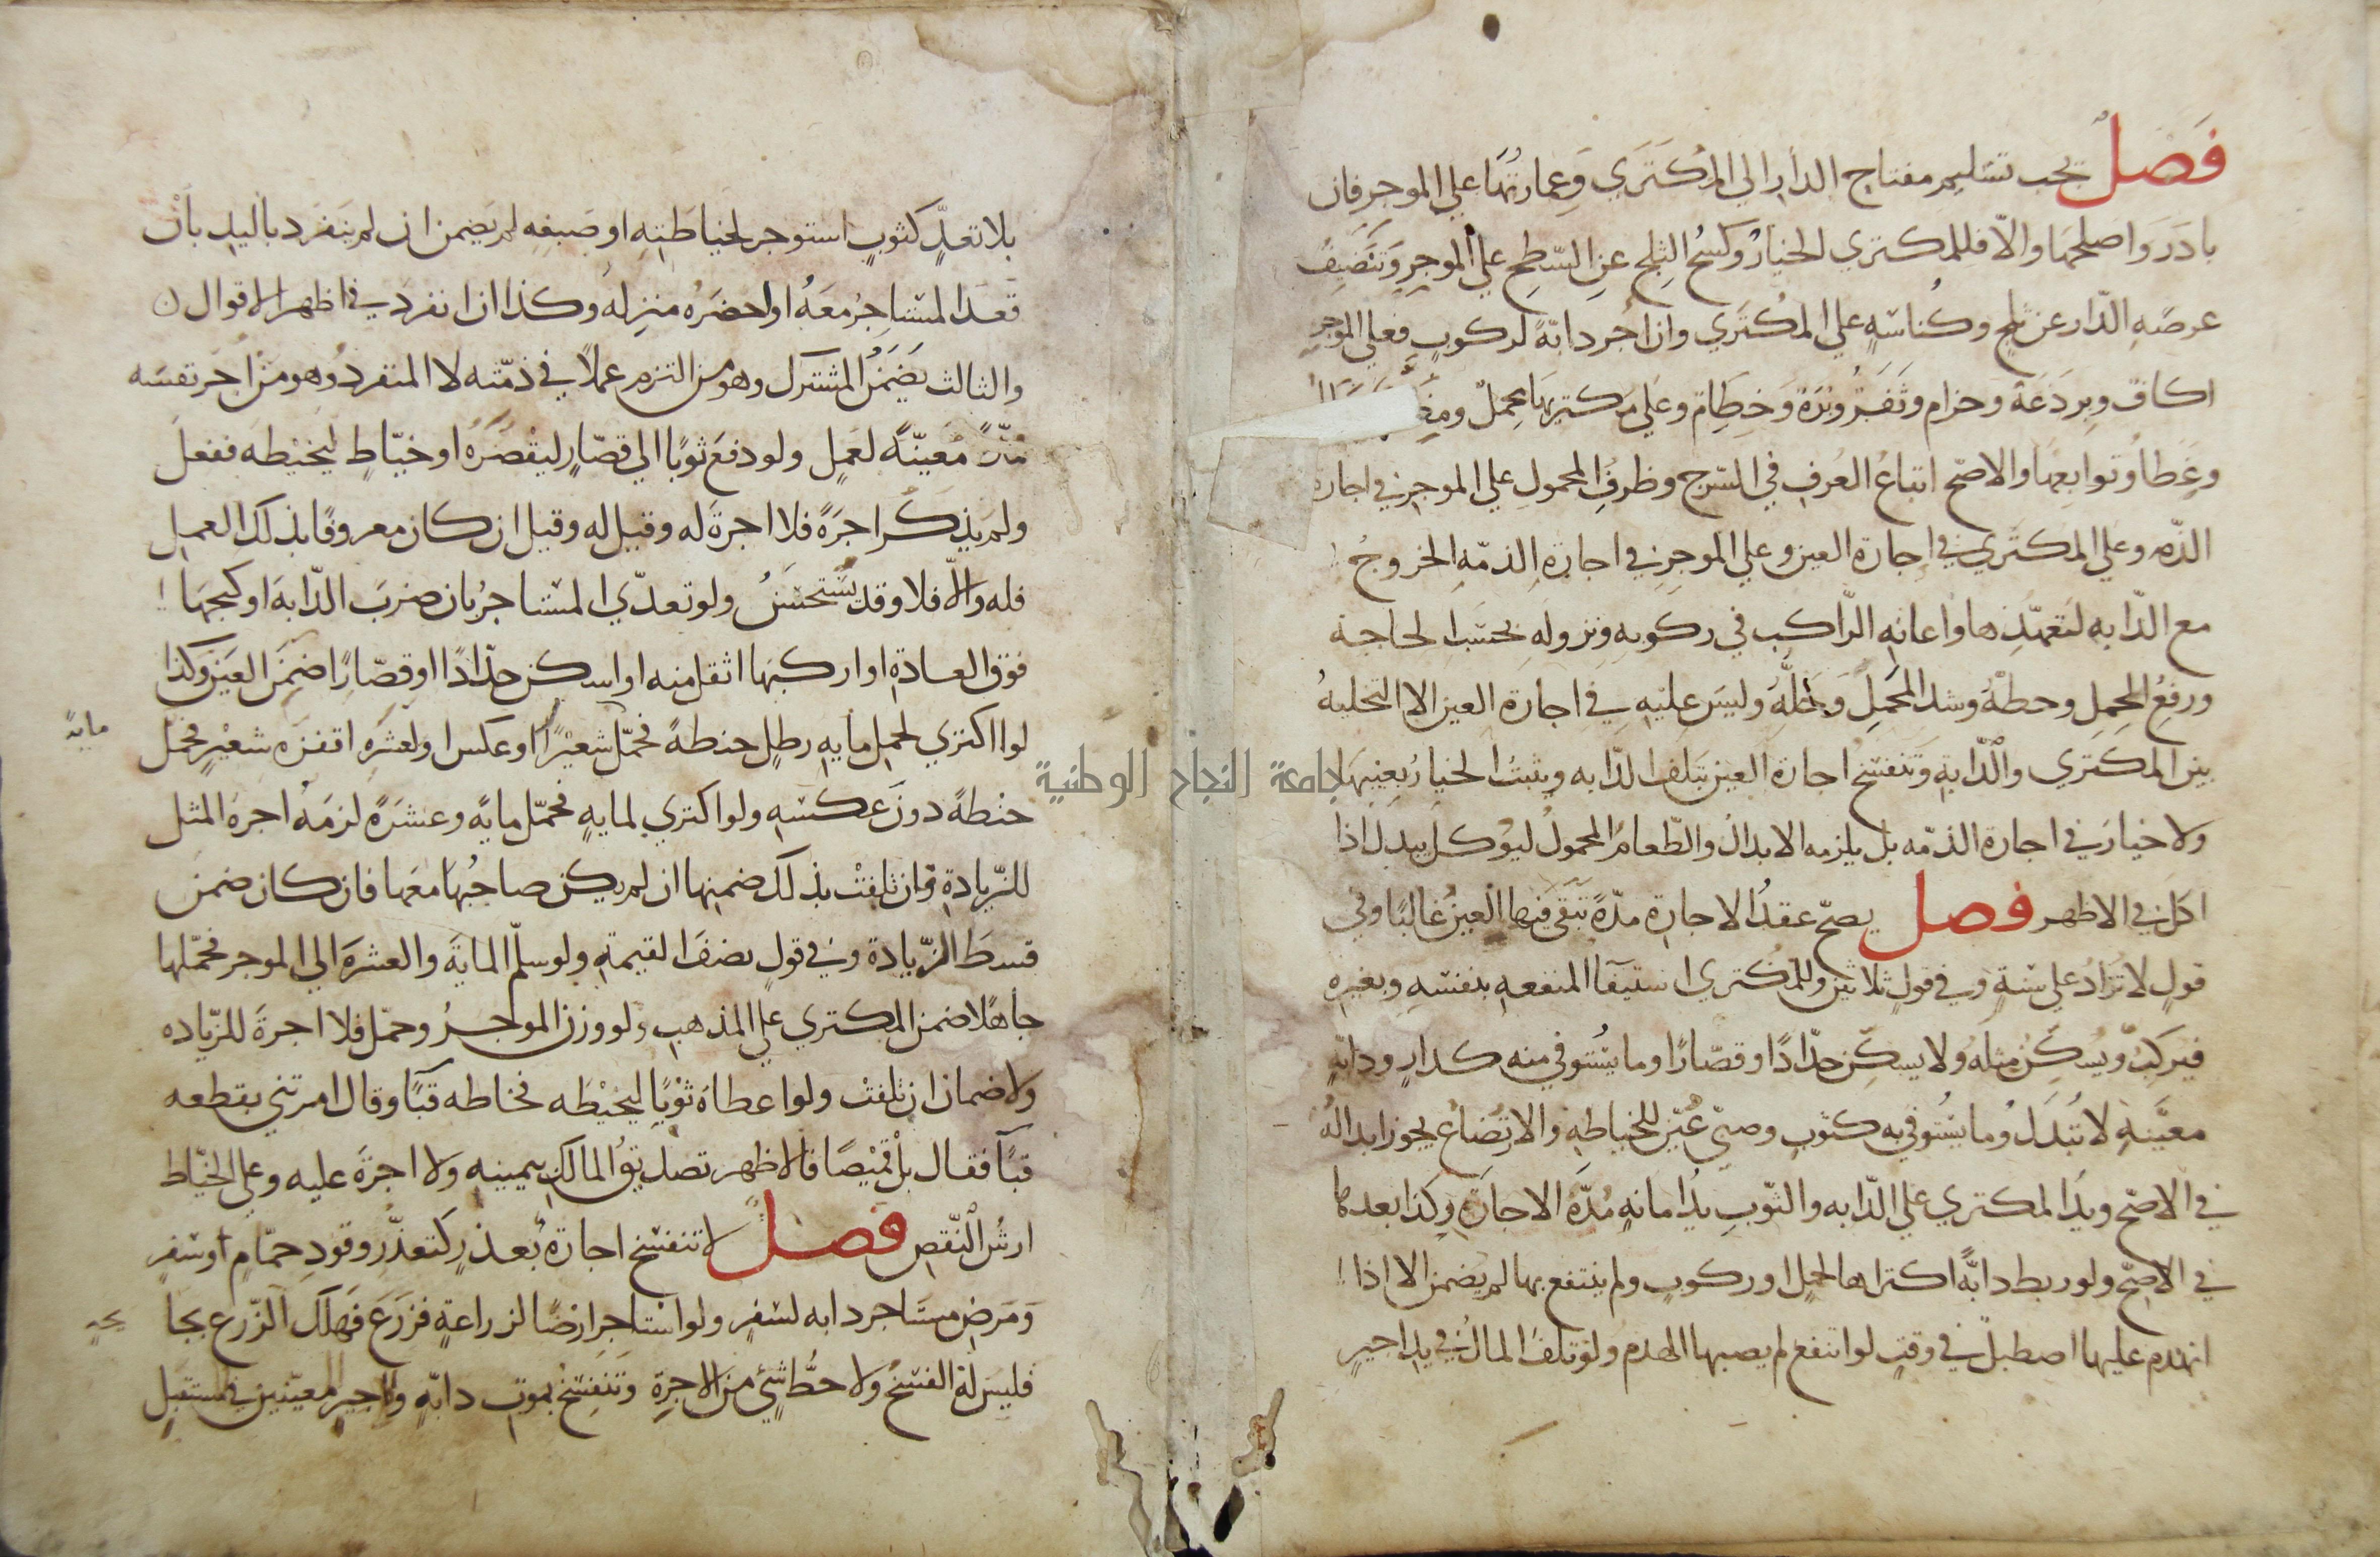 فَصْلٌ يجب تسليم مفتاح الدار الي المُكْتَرَي وَعِمارتُهَا علي الموجر فان
بادَرَ واصلحها والّا فللمكتري الخيارُ وكسْحُ الثلج عن السّطح علي الموجر وَتنضيفُ
عرصَهِ الدّار عن ثلجٍ وكُناسَهٍ علي المُكتَري وان اُجر دابّهً لركوبٍ فعلي الموجر
اكاف وبردَعَة وحزام وثَفَرٌ وبُرَة وَخِطام وعلي مكتريها محملٌ ومِظَ
وغِطاُ وتوابعها والاصحّ اتباعُ العُرفِ في السّرج وظرفُ المحمولِ علي الموجر في اجارة
الذّمه وعلي المكتَري في اِجارة العين وعلي الموجر في اجارة الذمّهِ الخروجُ
مع الدّابه لتعهّدِها واعانهِ الرّاكب في ركوبه ونزوله بحسَب الحاجة
ورفعُ الحِملِ وحطّهُ وشدُ المَحمِلِ وَحَلّهُ وليسَ عليْهِ في اجارة العين الا التخليهُ
بين المكتري والدّابهِ وَتنفسخ اجارة العين بتلف الدّابه ويثبتُ الخيارُ بعيبها
ولا خيارَ في اجارة الذمّه بل يلزمه الابدالُ والطّعامُ المحمولُ ليؤكل يبدل اذا
اكل في الاظهر فصل يصحّ عقدُ الاجارة مدّهً تبْقي فيها العينُ غالبًا وفي
قولٍ لا تُزادُ علي سَنهٍ وفي قولٍ ثلاثين وللمُكتري استيفآ المنفعه بنفسهِ وبغيرهِ
فيركبُ ويُسكِنُ مثلَهُ ولا يسكن حدّادًا وقصّارًا وما يُستوفي منه كدارٍ ودابّهٍ
معيّنهٍ لا تُبدَلُ وما يُستوفي به كثوبٍ وصبيٍّ عُيّن للخياطهِ والارتضاعِ يجوز ابدالُهُ
في الاصحّ ويدُ المكتري علي الدّابه والثّوبِ يدُ امانهٍ مُدَّهَ الاجارةِ وكذا بعدها
في الاصحّ ولو ربط دابّهً اكتراها لحملٍ او ركوبٍ ولم ينتفع بها لم يضمن الا اذا
انهدم عليها اصطبلٌ في وقتٍ لو انتفع لم يصبها الهدم ولو تلف المالُ في يدِ اجيرٍ
بلا تعدٍّ كثوبٍ استوجر لخياطَتِهِ او صَبغِه لم يَضمن ان لم ينفرد باليدِ بأنْ
قعدَ المستاجرُ معَهُ او احضرَهُ منزِلَهُ وكذا ان انفردَ في اظهر الاقوال
والثالث يَضمَنُ المشترك وهو من التزم عملًا في ذمّته لا المنفردُ وهو منْ اجّر نفسَه
مُدّةً مُعيّنهً لعَملٍ ولو دفع ثوبًا الي قصّارٍ ليقصُرَهُ او خيّاطٍ ليخيْطه ففعلَ
ولم يَذكر اجرَةً فلا اجرةَ له وقيل له وقيل ان كان معروفًا بذلك العمل
فله والّا فلا وقد يُستحْسَنُ ولو تعدّي المستاجرُ بان ضربَ الدّابة او كبحَها
فوق العادةِ او اركبَها اثقل منه او اسكن حدّادًا او قصّارًا ضمِنَ العين وكذا
لو اكتري لحمل مايهِ رطلٍ حنطهً فحمّل شعيْرًا او عكس او لعشَرِهِ اقفزهِ شعيْرٍ فحمّل
مايةً
حنطةً دونَ عكسِهِ ولو اكتري لمايهٍ فحمّل مايةً وعشَرَةً لزمَهُ اجرة المثل
للزّيادةِ وان تلِفتْ بذلك ضمِنها ان لم يكن صاحبُها معها فان كان ضمن
قسطَ الزّيادة وفي قولٍ نصفَ القيمةِ ولو سلّم المايَةَ والعشرَةَ الي الموجر فحمّلها
جاهلًا ضمن المكتري علي المذهب ولو وزن الموجرُ وحمّل فلا اجرةَ للزّياده
ولا ضمان ان تلفتْ ولو اعطاهُ ثوْبًا ليخيْطه فخاطه قبآً وقال امرتني بقطعه
قبآً فقال بلْ قميْصًا فالاظهر تصديقُ المالكِ بيمينهِ ولا اجرةَ عليه وعلي الخيّاط
ارشُ النّقصِ فصل لا تنفسخ اجارةٌ بُعذرٍ كتعذّرِ وقودِ حمّامٍ اوسَفرٍ
وَمَرضِ مستاجر دابه لسَفرٍ ولو استاجر ارضًا لزراعةٍ فزرَعَ فهلكَ الزّرع بجا
يحةٍ
فليسَ لهُ الفسخُ ولا حطُّ شيءٍ من الاجرةِ وتنفسخُ بموتِ دابّهٍ واجيرٍ معيّنين في مستقبل
جامعة النجاح الوطنية